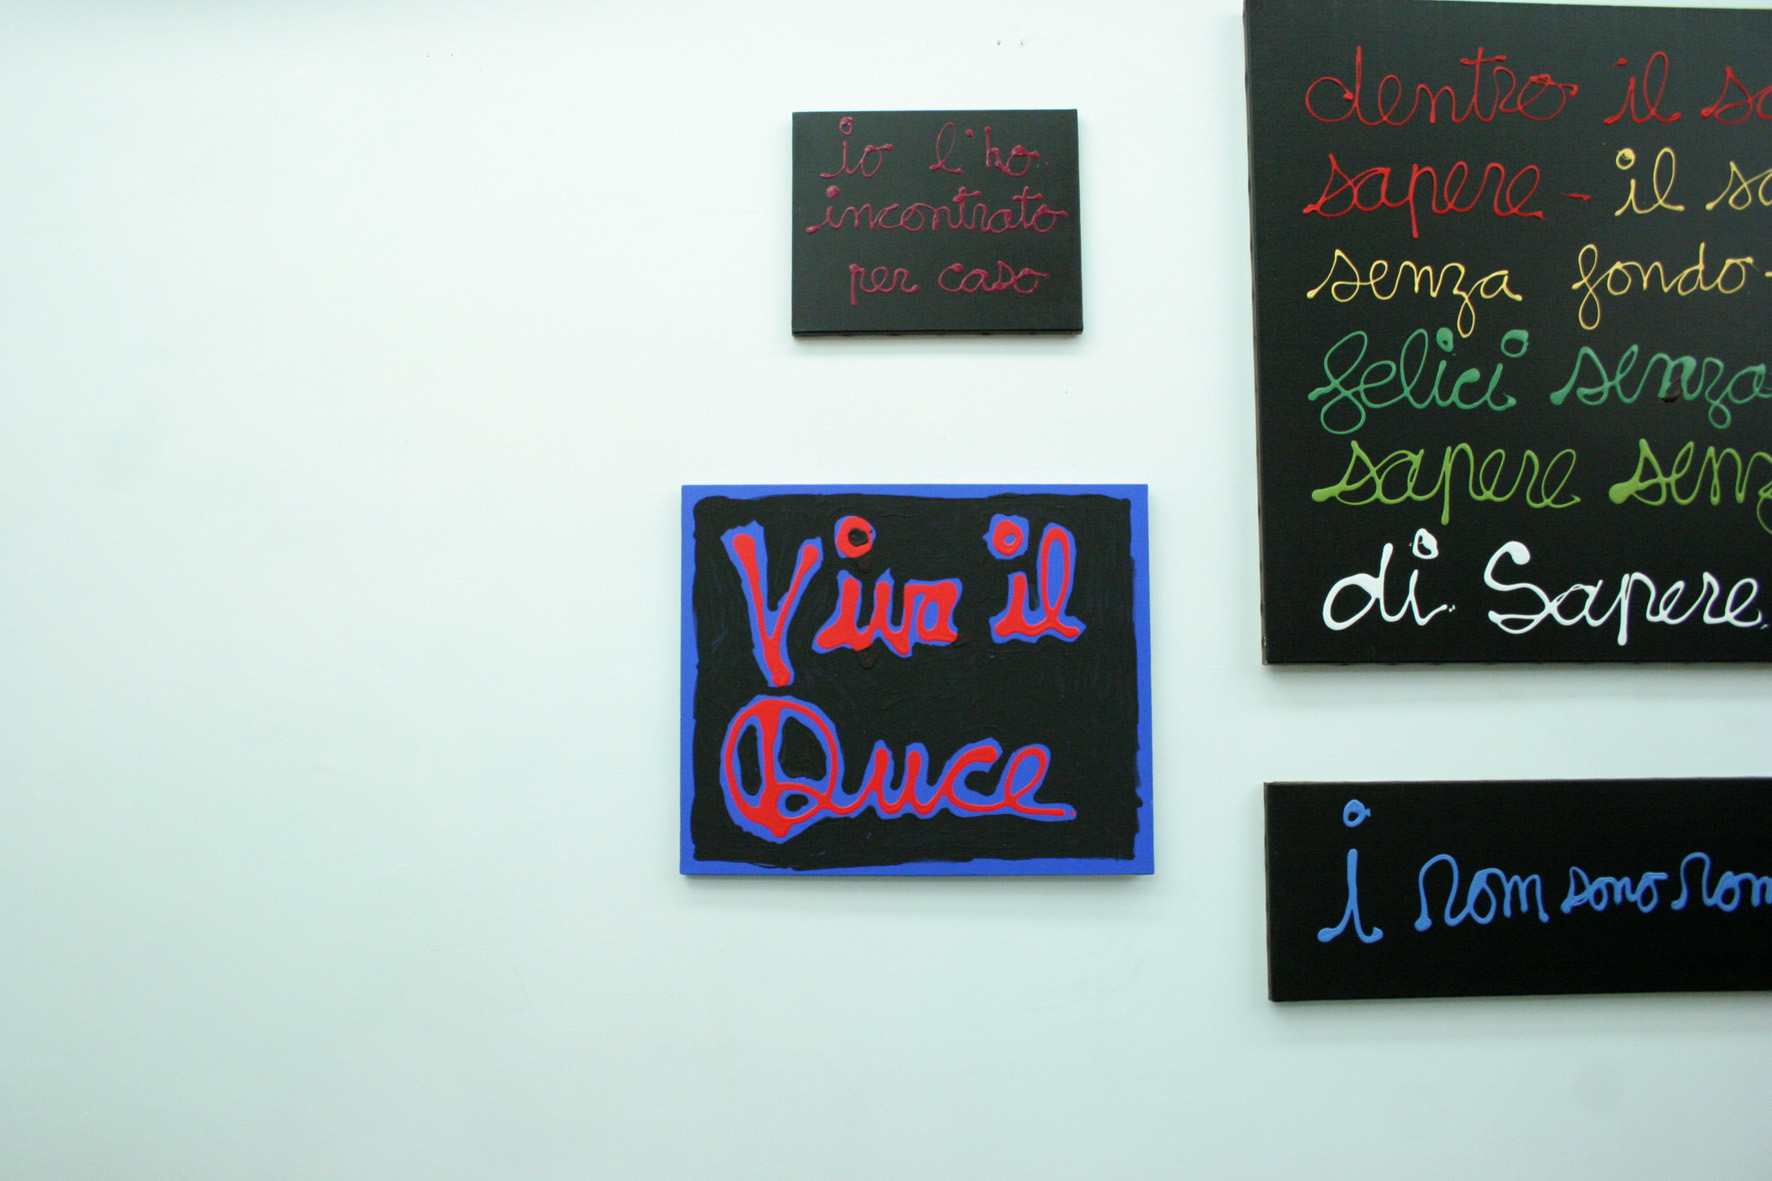 io l'ho
incontrato
per caso
Viva il
Duce
dentro il
sapere - il
senza fondo -
felici senza
sapere
di Sapere
i nom sono nom